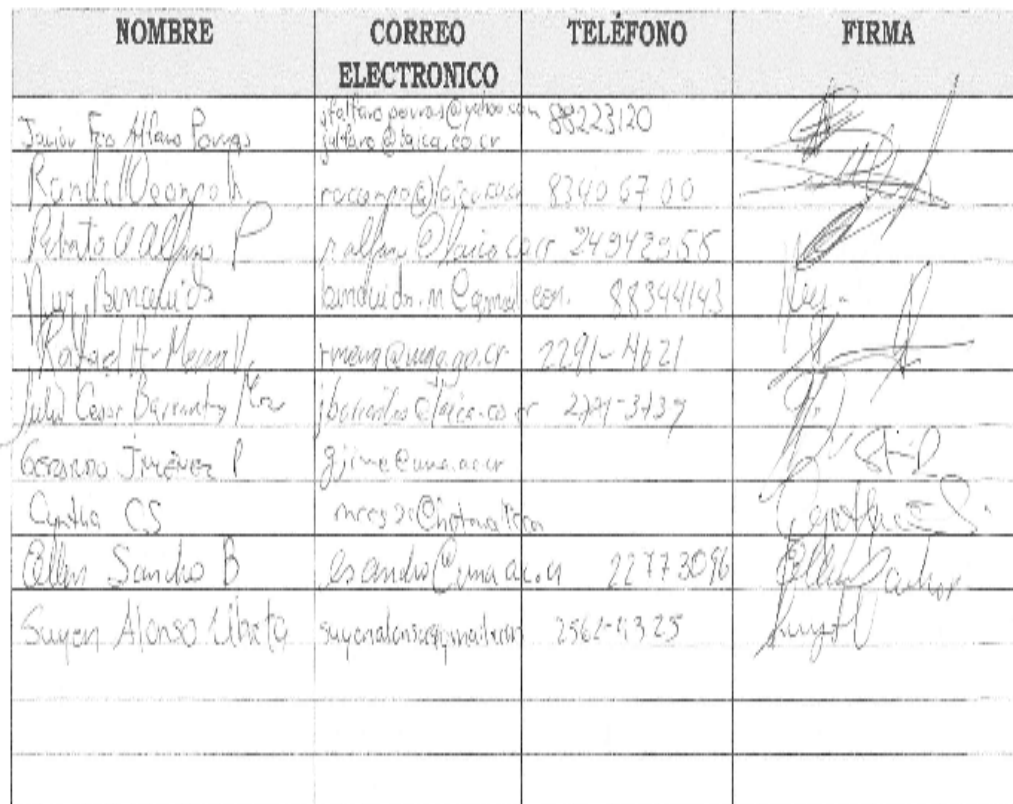 NOMBRE CORREO ELECTRONICO TELÉFONO FIRMA
Javier Fco Alfaro Porras jfalfaroporras@yahoo.com 88223120
jalfaro@laica.co.cr
Randall Ocampo h. rocampo@laica.co.cr 8340 67 00
Roberto Alfaro P ralfaro@laica.co.cr 24942955
Benavides benavides.n@gmail.com. 88344143
Rafael A. Mena V. rmena@una.ac.cr 2291-4621
Julio Cesar Barrantes jbarrantes@laica.co.cr
GERARDO JIMÉNEZ P gjime@una.ac.cr
Cynthia CS @hotmail.com Cynthia CS.
Ellen Sancho B esancho@una.ac.cr 22773096 Ellen Sancho
Suyen Alonso Ubieta suyenalonso@gmail.com 2562-4325